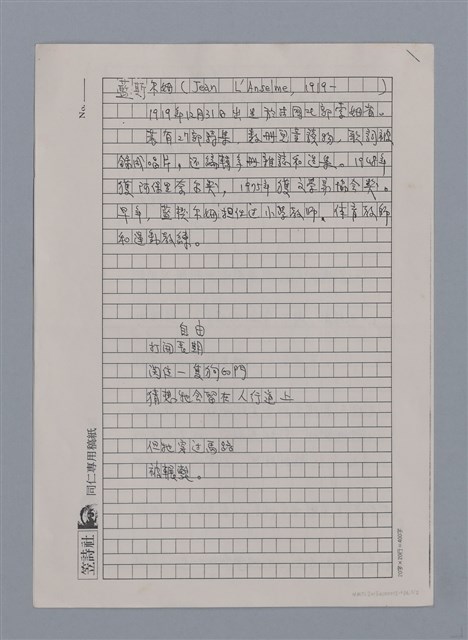 藍斯尔姆(Jean L'Anselme, 1919- )
1919年12月31日出生於法國北部索姆省。
著有27部詩集、數冊兒童讀物、歌詞被
錄成唱片。还編輯多冊雜誌和選集。1948年
獲阿保里奈尔奖,1975年獲文學界協會奖。
早年,藍斯尔姆担任过小學教師、体育教師
和運動教練。
自由
打開長期
関住一隻狗的門
猜想牠会留在人行道上
但牠穿过馬路
被輾斃。
No.
笠詩社
同仁專用稿紙